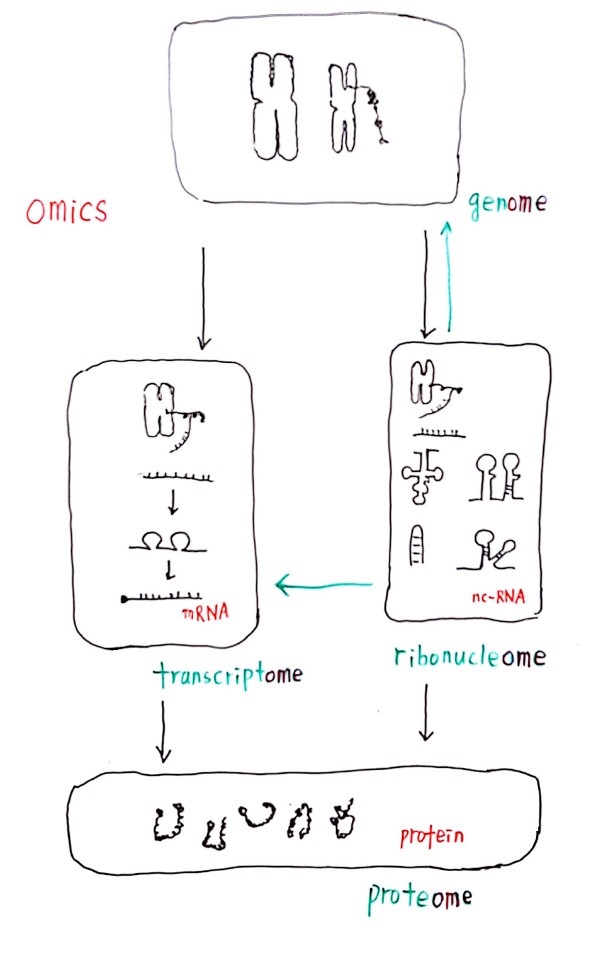 omics
genome
mRNA
nc-RNA
transcriptome
ribonucleome
protein
proteome